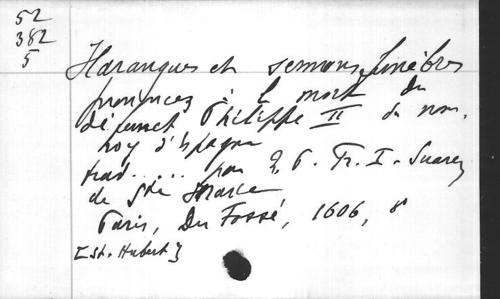 52
382
5
Harangues et sermons funèbres
prononcez à la mort du
défunct Philippe II du nom,
roy d'Espagne
trad. .... par R. P. Fr. I. Suarez
de Ste Marie
Paris, Du Fossé, 1606, 8°
[St. Hubert]